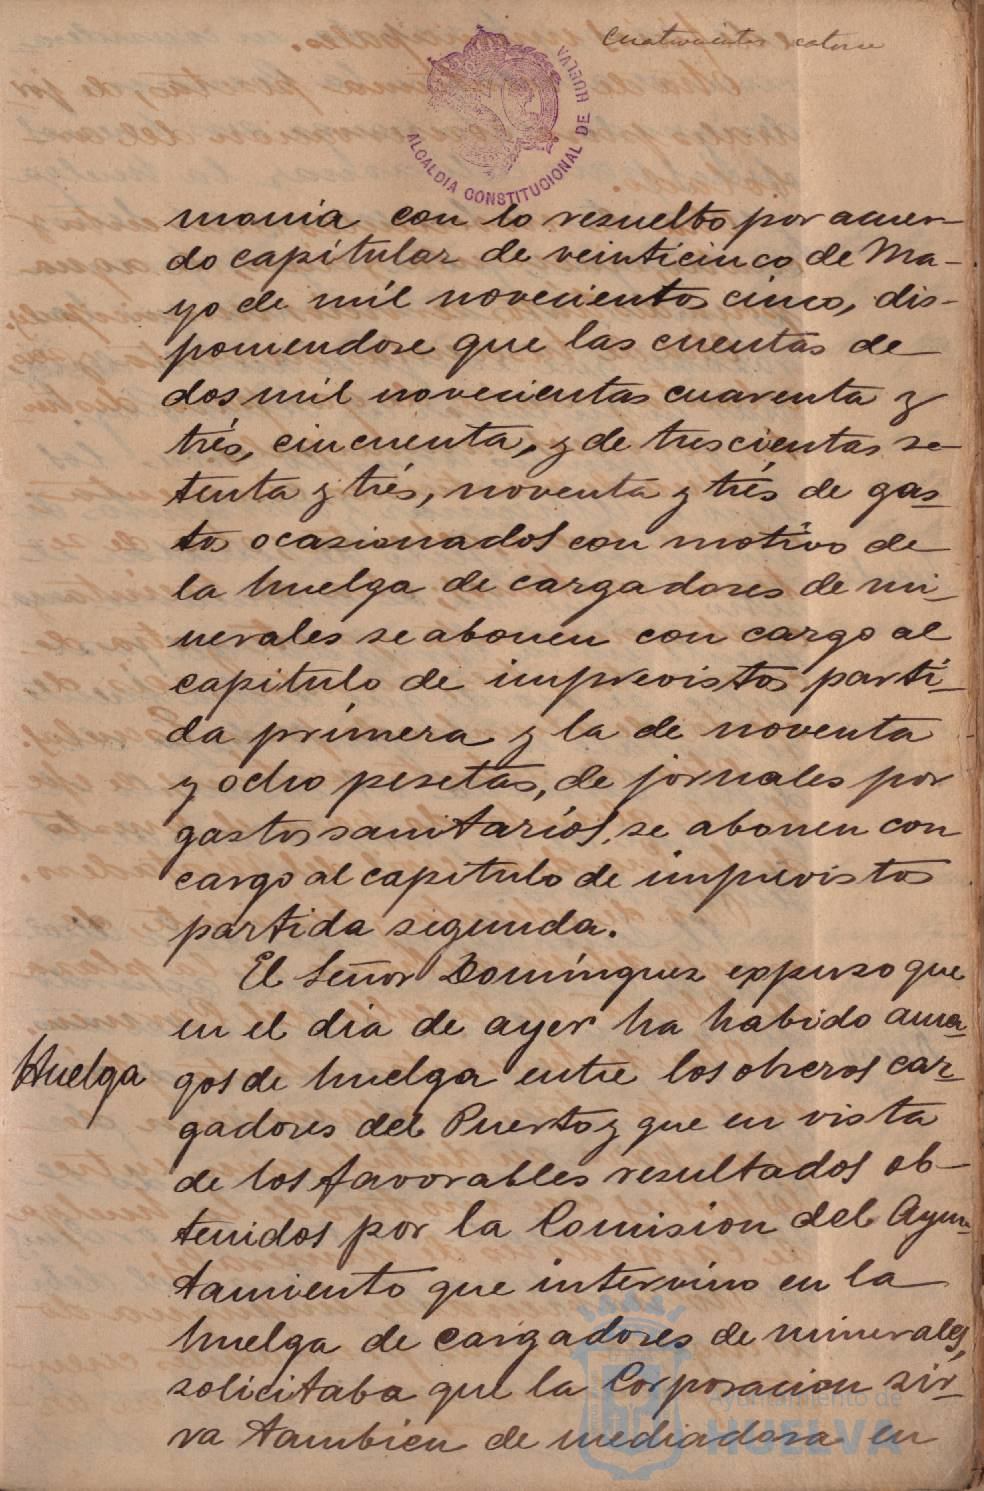 Cuatrocientos catorce
ALCALDIA CONSTITUCIONAL DE HUELVA
monia con lo resuelto por acuer-
do capítular de veinticinco de Ma-
yo de mil novecientos cinco, dis-
poniendose que las cuentas de
dos mil novecientas cuarenta y
trés, cincuenta, y de trescientas se-
tenta y trés, noventa y trés de gas-
tos ocasionados con motivo de
la huelga de cargadores de mi-
nerales se abonen con cargo al
capitulo de imprevistos parti-
da primera y la de noventa
y ocho pesetas, de jornales por
gastos sanitarios, se abonen con
cargo al capitulo de imprevistos
partida segunda.
El Señor Domínguez expuso que
en el dia de ayer ha habido ama-
Huelga
gos de huelga entre los obreros car-
gadores del Puerto y que en vista
de los favorables resultados ob-
tenidos por la Comision del Ayun-
tamiento que intervino en la
huelga de cargadores de minerales,
solicitaba que la Corporacion sir-
va tambien de mediadora en
Ayuntamiento de
HUELVA